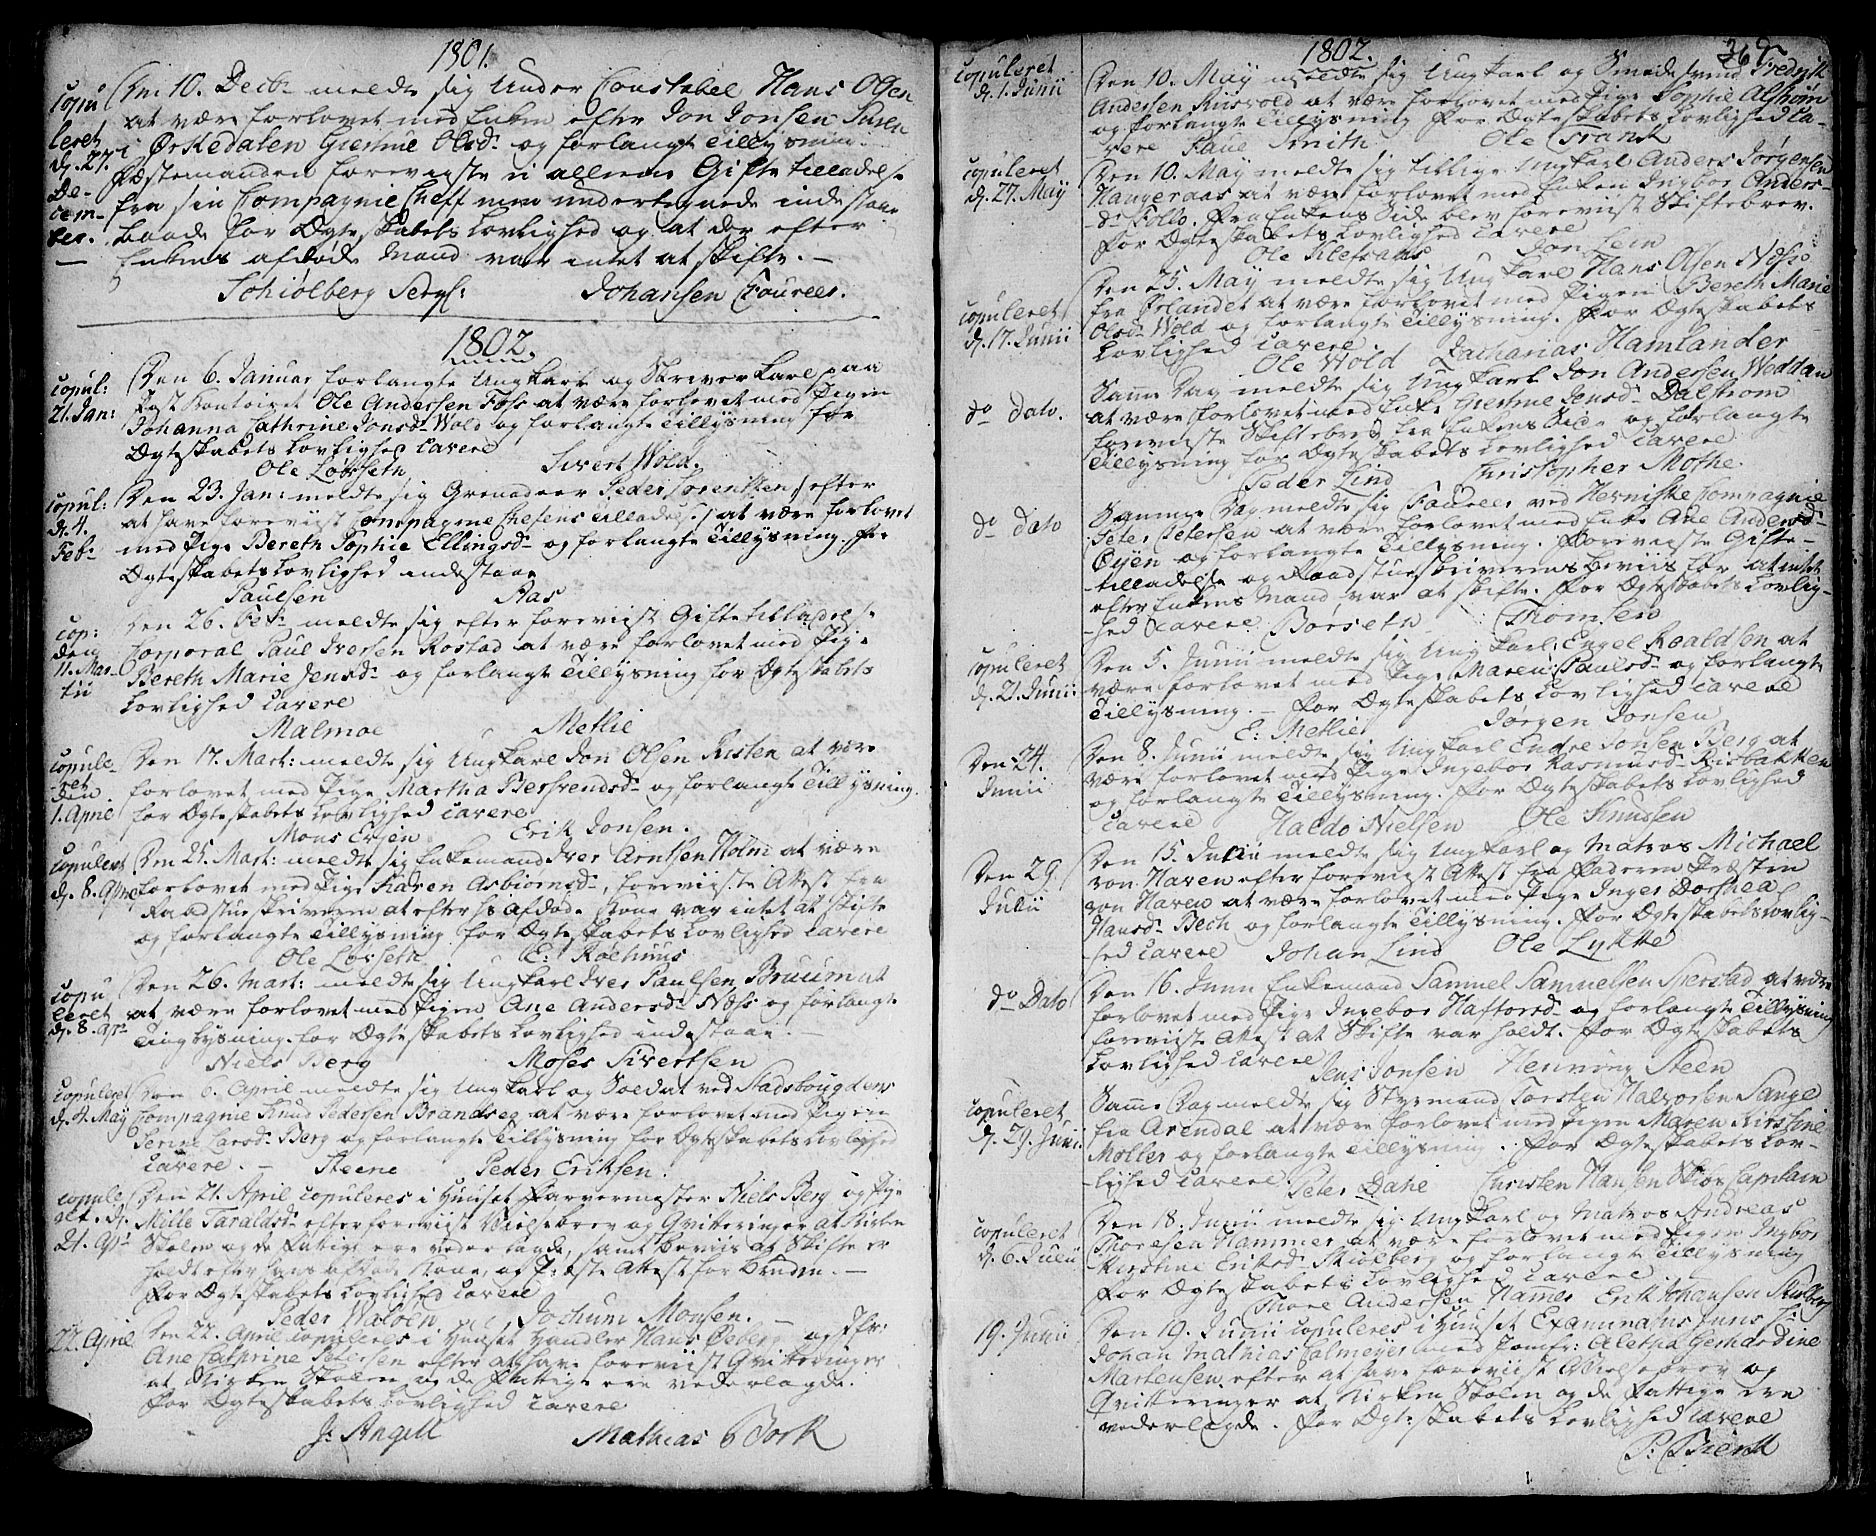 1801.
Copu
leret
d. 27.
De-
cem-
ber.
Den 10. Decbr meldte sig Under Constabel Hans Olsen
at være forlovet med Enken efter Jon Jonsen
i Ørkedalen Giertrue Olsdr og forlangte Tillysning.
Fæstemanden foreviste Giftetilladelse
fra sin Compagnie Cheff men undertegnede indestaae
baade for Ægteskabets Lovlighed og at der efter
Enkens afdøde Mand var intet at skifte.
Schiølberg Sergt: Johansen Foureer.
1802.
Copul:
21. Jan:
Den 6. Januar forlangte Ungkarl og Skriverkarl paa
Ole Andersen Foss at være forlovet med Pigen
Johanna Cathrine Jonsdr Wold og forlangte Tillysning for
Ægteskabets Lovlighed cavere
Ole Løvseth Sivert Wold.
Copul:
d. 4.
Febr
Den 23. Jan: meldte sig Grenadeer Peder Lorentzen /: efter
at have foreviist Compagnie Chefens Tilladelse :/ at være forlovet
med Pige Bereth Sophie Ellingsdr og forlangte Tillysning. For
Ægteskabets Lovlighed indestaae
Paulsen Ras
Cop:
den
11. Mar-
tii
Den 26. Febr meldte sig efter foreviist Giftetilladelse
Corporal Paul Iversen Rostad at være forlovet med Pige
Bereth Marie Jensdr og forlangte Tillysning for Ægteskabets
Lovlighed cavere
Malmoe Metlie
Copule-
ret
den
1. April
Den 17. Mart: meldte sig Ungkarl Jon Olsen Risten at være
forlovet med Pige Martha Bersvendsdr og forlangte Tillysning.
for Ægteskabets Lovlighed cavere
Mons Ersen Erik Jonsen.
Copuleret
d. 8. April
Den 25. Mart: meldte sig Enkemand Iver Arntsen Holm at være
forlovet med Pige Karen Asbiørnsdr, foreviiste Attest fra
Raadstueskriveren at efter hs afdøde Kone var intet at skifte
og forlangte Tillysning for Ægteskabets Lovlighed cavere
Ole Løvseth E: Røehuus
Copu
leret
d. 8. Apr:
Den 26. Mart: meldte sig Ungkarl Iver Paulsen Bruum at
at være forlovet med Pigen Ane Andersdr Næss og forlangte
Tinglysning. for Ægteskabets Lovlighed indestaae.
Niels Berg Moses Sivertsen
Copuleret
d. 4. May
Den 6. April meldte sig Ungkarl og Soldat ved Stadsboigdens
Compagnie Knud Pedersen Brandseg at være forlovet med Pigen
Larsdr Berg og forlangte Tillysning for Ægteskabets Lovlighed
cavere. Steene Peder Eriksen.
Copule
ret d.
21. Apr:
Den 21. April copuleres i Huuset Farvermester Niels Berg og Pige
Mille Taraldsdr efter foreviist Vielsebrev og Qvitteringer at Kirken
Skolen og de Fattige ere vederlagde, samt Beviis at Skifte er
holdt efter hans afdøde Kone, og Præste Attest for Bruden.
For Ægteskabets Lovlighed cavere
Peder Walöen Jochum Monsen.
22. April
Den 22. April copuleres i Huuset Handler Hans og Jfr:
Ane Cathrine Petersen efter at have foreviist Qvitteringer
at Kirken Skolen og de Fattige ere vederlagde.
For Ægteskabets Lovlighed cavere
J: Angell Mathias Bork
1802.
Copuleret
d. 1. Junii
Den 10. May meldte sig Ungkarl og Smedesvend Fredrik
Andersen Riisvold at være forlovet med Pige Sophie Alstrøm
og forlangte Tillysning for Ægteskabets Lovlighed ca-
vere Paul Smith Ole Crank
Copuleret
d. 27. May
Den 10. May meldte sig tillige Ungkarl Anders Jørgensen
Haugeraas at være forlovet med Enken Ingbor Anders-
dr Follo. Fra Enkens Side blev foreviist Skiftebrev.
For Ægteskabets Lovlighed cavere
Ole Klefsaas Jon Lein
Copuleret
d. 17. Junii
Den 25. May meldte sig Ungkarl Hans Olsen Næss
fra Ørlandet at være forlovet med Pigen Bereth Marie
Olsdr Wold og forlangte Tillysning. For Ægteskabets
Lovlighed cavere
Ole Wold Zacharias Hamlander
do dato.
Samme Dag meldte sig Ungkarl Jon Andersen Weddan
at være forlovet med Enke Giertrue Jensdr Dalstrøm
foreviiste Skiftebrev fra Enkens Side og forlangte
Tillysning for Ægteskabets Lovlighed cavere
Peder Lind Christopher Mothe.
do dato
Samme Dag meldte sig Foureer ved Hernische Compagnie
Peter Petersen at være forlovet med Enke Ane Andersdr
Øyen og forlangte Tillysning. Foreviiste Gifte-
tilladelse og Raadstueskriverens Beviis for at intet
efter Enkens Mand var at skifte. For Ægteskabets Lovlig-
hed cavere Borseth Thomsen
Copuleret
d. 21. Junii
Den 5. Junii meldte sig Ungkarl Engel Roaldsen at
være forlovet med Pige Maren Paulsdr og forlangte
Tillysning. - For Ægteskabets Lovlighed cavere
E: Metlie Jørgen Jonsen
Den 24.
Junii
Den 8. Junii meldte sig Ungkarl Endre Jonsen Berg at
være forlovet med Pige Ingebor Rasmusdr Risbakken
og forlangte Tillysning. For Ægteskabets Lovlighed
cavere Haldo Nielsen Ole Knudsen
Den 29.
Julii
Den 15. Junii meldte sig Ungkarl og Matros Michael
von Haven efter foreviist Attest fra Faderen Præsten
von Haven at være forlovet med Pige Inger Dorthea
Hansdr Bech og forlangte Tillysning. For Ægteskabets Lovlig-
hed cavere Johan Lind Ole Lykke
do Dato
Den 16. Junii Enkemand Samuel Samuelsen Sierstad at være
forlovet med Pige Ingebor Haftorsdr og forlangte Tillysning
foreviiste Attest at Skifte var holdt. For Ægteskabets
Lovlighed cavere Jens Jonsen Henning Steen
Copuleret
d. 29. Junii
Samme Dag meldte sig Styrmand Torsten Halvorsen Sange
fra Arendal at være forlovet med Pigen Maren Kirstine
Møller og forlangte Tillysning. For Ægteskabets Lov-
lighed cavere Peter Dahl Christen Hansen Skiøs Captain
Copuleret
d. 6. Julii
Den 18. Junii meldte sig Ungkarl og Matros Andreas
Thoresen Hammer at være forlovet med Pigen Ingbor
Kirstine Eriksdr Skiølberg og forlangte Tillysning
For Ægteskabets Lovlighed cavere
Thore Andersen Hamer Erik Johansen Skiølberg
19. Junii
Den 19. Junii copuleres i Huuset Examinatus Juris Hr
Johan Mathias Colmeyer med Jomfr: Aletha Gerhardine
Martensen efter at have foreviist Vielsebrev og
Qvitteringer at Kirken Skolen og de Fattige ere
vederlagde. For Ægteskabets Lovlighed cavere